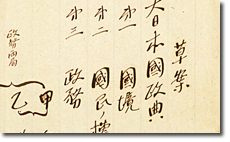 草案
大日本國政典
第一 國境
第二 國民ノ
第三 政務
甲
乙